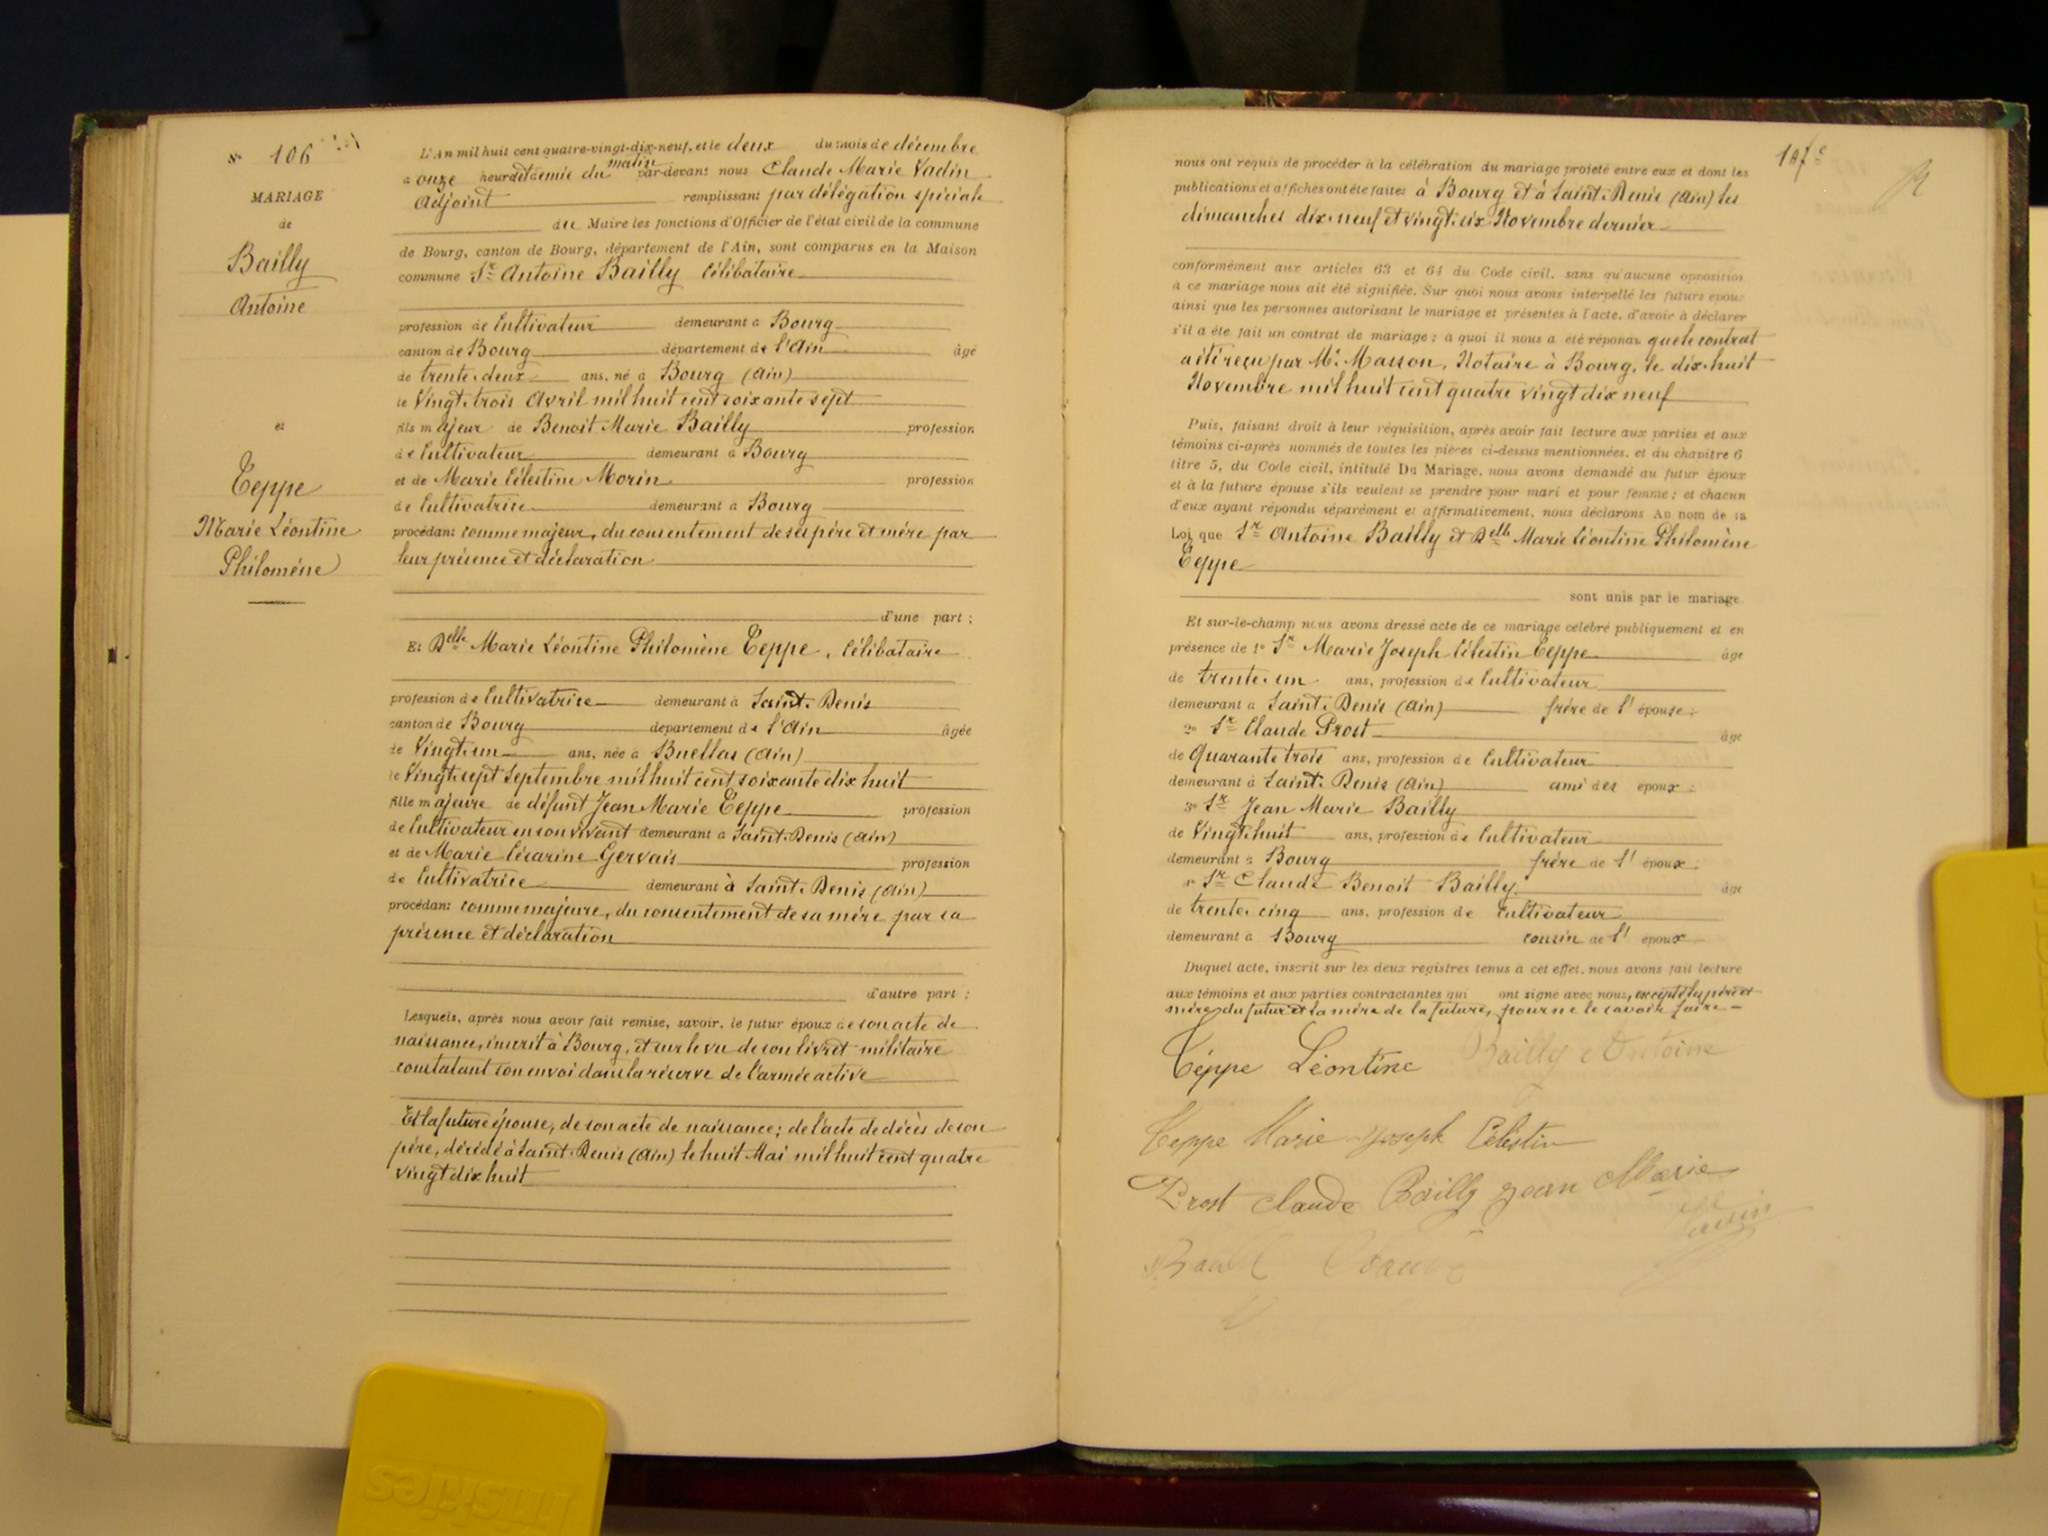 N° 106
MARIAGE
de
Bailly
Antoine
et
Teppe
Marie Léontine
Philomène
L'An mil huit cent quatre-vingt-dix-neuf, et le deux du mois de décembre
à onze heures et demie du matin par-devant nous Claude Marie Vadin
Adjoint remplissant par délégation spéciale
du Maire les fonctions d'Officier de l'état civil de la commune
de Bourg, canton de Bourg, département de l'Ain, sont comparus en la Maison
commune Sr Antoine Bailly célibataire
profession de Cultivateur demeurant à Bourg
canton de Bourg département de l'Ain âgé
de trente-deux ans, né à Bourg (Ain)
le Vingt-trois Avril mil huit cent soixante sept
fils majeur de Benoit Marie Bailly profession
de Cultivateur demeurant à Bourg
et de Marie Célestine Morin profession
de Cultivatrice demeurant à Bourg
procédant comme majeur, du consentement de ses père et mère par
leur présence et déclaration
d'une part ;
Et Delle Marie Léontine Philomène Teppe, célibataire
profession de Cultivatrice demeurant à Saint-Denis
canton de Bourg département de l'Ain âgée
de Vingt-un ans, née à Buellas (Ain)
le Vingt-sept Septembre mil huit cent soixante dix huit
fille majeure de défunt Jean Marie Teppe profession
de Cultivateur en son vivant demeurant à Saint-Denis (Ain)
et de Marie Césarine Gervais profession
de Cultivatrice demeurant à Saint-Denis (Ain)
procédant comme majeure, du consentement de sa mère par sa
présence et déclaration
d'autre part ;
Lesquels, après nous avoir fait remise, savoir, le futur époux de son acte de
naissance, inscrit à Bourg, et sur le vu de son livret militaire
constatant son envoi dans la réserve de l'armée active
Et la future épouse, de son acte de naissance ; de l'acte de décès de son
père, décédé à Saint-Denis (Ain) le huit Mai mil huit cent quatre
vingt dix huit
107e
nous ont requis de procéder à la célébration du mariage projeté entre eux et dont les
publications et affiches ont été faites à Bourg et à Saint-Denis (Ain) les
dimanches dix-neuf et vingt-six Novembre dernier
conformément aux articles 63 et 64 du Code civil, sans qu'aucune opposition
à ce mariage nous ait été signifiée. Sur quoi nous avons interpellé les futurs époux
ainsi que les personnes autorisant le mariage et présentes à l'acte, d'avoir à déclarer
s'il a été fait un contrat de mariage ; à quoi il nous a été répondu que le contrat
a été reçu par Me Masson, Notaire à Bourg, le dix-huit
Novembre mil huit cent quatre vingt dix neuf
Puis, faisant droit à leur réquisition, après avoir fait lecture aux parties et aux
témoins ci-après nommés de toutes les pièces ci-dessus mentionnées, et du chapitre 6
titre 5, du Code civil, intitulé Du Mariage, nous avons demandé au futur époux
et à la future épouse s'ils veulent se prendre pour mari et pour femme ; et chacun
d'eux ayant répondu séparément et affirmativement, nous déclarons Au nom de la
Loi que Sr Antoine Bailly et Delle Marie Léontine Philomène
Teppe
sont unis par le mariage
Et sur-le-champ nous avons dressé acte de ce mariage célébré publiquement et en
présence de 1° Sr Marie Joseph Célestin Teppe âgé
de trente-un ans, profession de Cultivateur
demeurant à Saint-Denis (Ain) frère de l'épouse ;
2° Sr Claude Prost âgé
de Quarante trois ans, profession de Cultivateur
demeurant à Saint-Denis (Ain) ami des époux ;
3° Sr Jean Marie Bailly
de Vingt-huit ans, profession de Cultivateur
demeurant à Bourg frère de l'époux ;
4° Sr Claude Benoit Bailly âgé
de trente-cinq ans, profession de Cultivateur
demeurant à Bourg cousin de l'époux
Duquel acte, inscrit sur les deux registres tenus à cet effet, nous avons fait lecture
aux témoins et aux parties contractantes qui ont signé avec nous, excepté les père et
mère du futur et la mère de la future, pour ne le savoir faire
Teppe Léontine Bailly Antoine
Teppe Marie Joseph Célestin
Prost Claude Bailly Jean Marie
Vadin
Bailly Claude